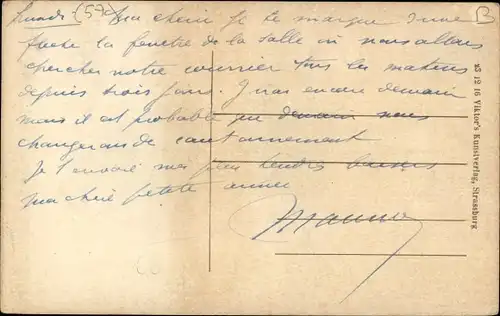 Lundi (57) Ma chérie je te marque d'une
flèche la fenêtre de la salle où nous allons
chercher notre courrier tous les matins
depuis trois jours. J'irai encore demain
mais il est probable que demain nous
changerons de cantonnement
Je t'envoie mes plus tendres baisers
ma chère petite aimée
Maurice
B
23 12 16 Viktor's Kunstverlag, Strassburg.